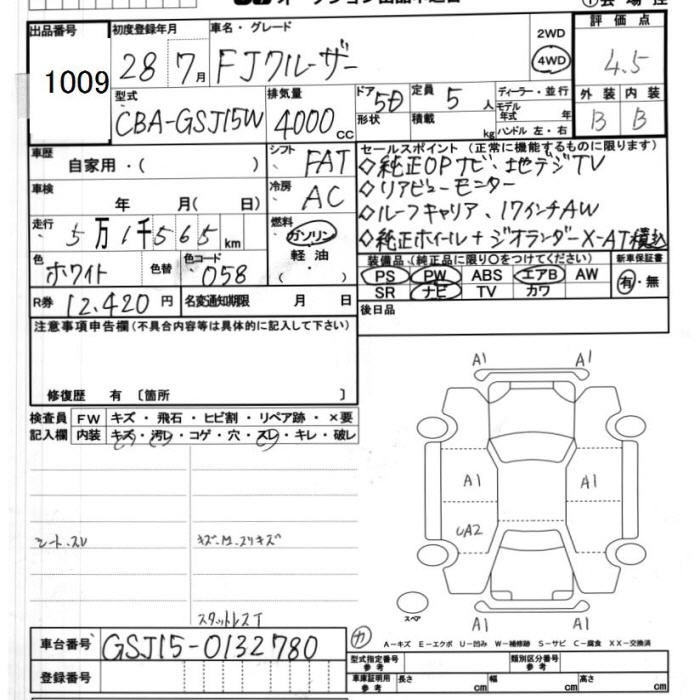 出品番号 1009
初度登録年月 28 7月
車名・グレード FJクルーザー
2WD
4WD
評価点 4.5
外装 内装
B B
型式 CBA-GSJ15W
排気量 4000cc
ドア 5D
形状
定員 5人
積載 kg
ディーラー・並行
モデル年式 年
ハンドル 左・右
車歴 自家用・( )
シフト FAT
車検 年 月( 日)
冷房 AC
走行 5万1千565km
燃料 ガソリン
軽油
( ・ )
色 ホワイト
色替
色コード 058
R券 12,420円
名変通知期限 月 日
セールスポイント(正常に機能するものに限ります)
◇純正OPナビ・地デジTV
◇リアビューモニター
◇ルーフキャリア、17インチAW
◇純正ホイール+ジオランダーX-AT積込
装備品(純正品に限り○をつけてください)
新車保証書
PS PW ABS エアB AW
SR ナビ TV カワ
有・無
後日品
注意事項申告欄(不具合内容等は具体的に記入して下さい)
修復歴 有 〔箇所 〕
検査員 FW キズ・飛石・ヒビ割・リペア跡・×要
記入欄 内装 キズ・汚レ・コゲ・穴・スレ・キレ・破レ
シート・スレ
キズ・M・スリキズ
スタットレスT
A1 A1
A1 A1
UA2
スペア
A1 A1
A-キズ E-エクボ U-凹み W-補修跡 S-サビ C-腐食 XX-交換済
車台番号 GSJ15-0132780
登録番号
型式指定番号 参考
類別区分番号 参考
車庫証明用 参考 長さ cm 幅 cm 高さ cm